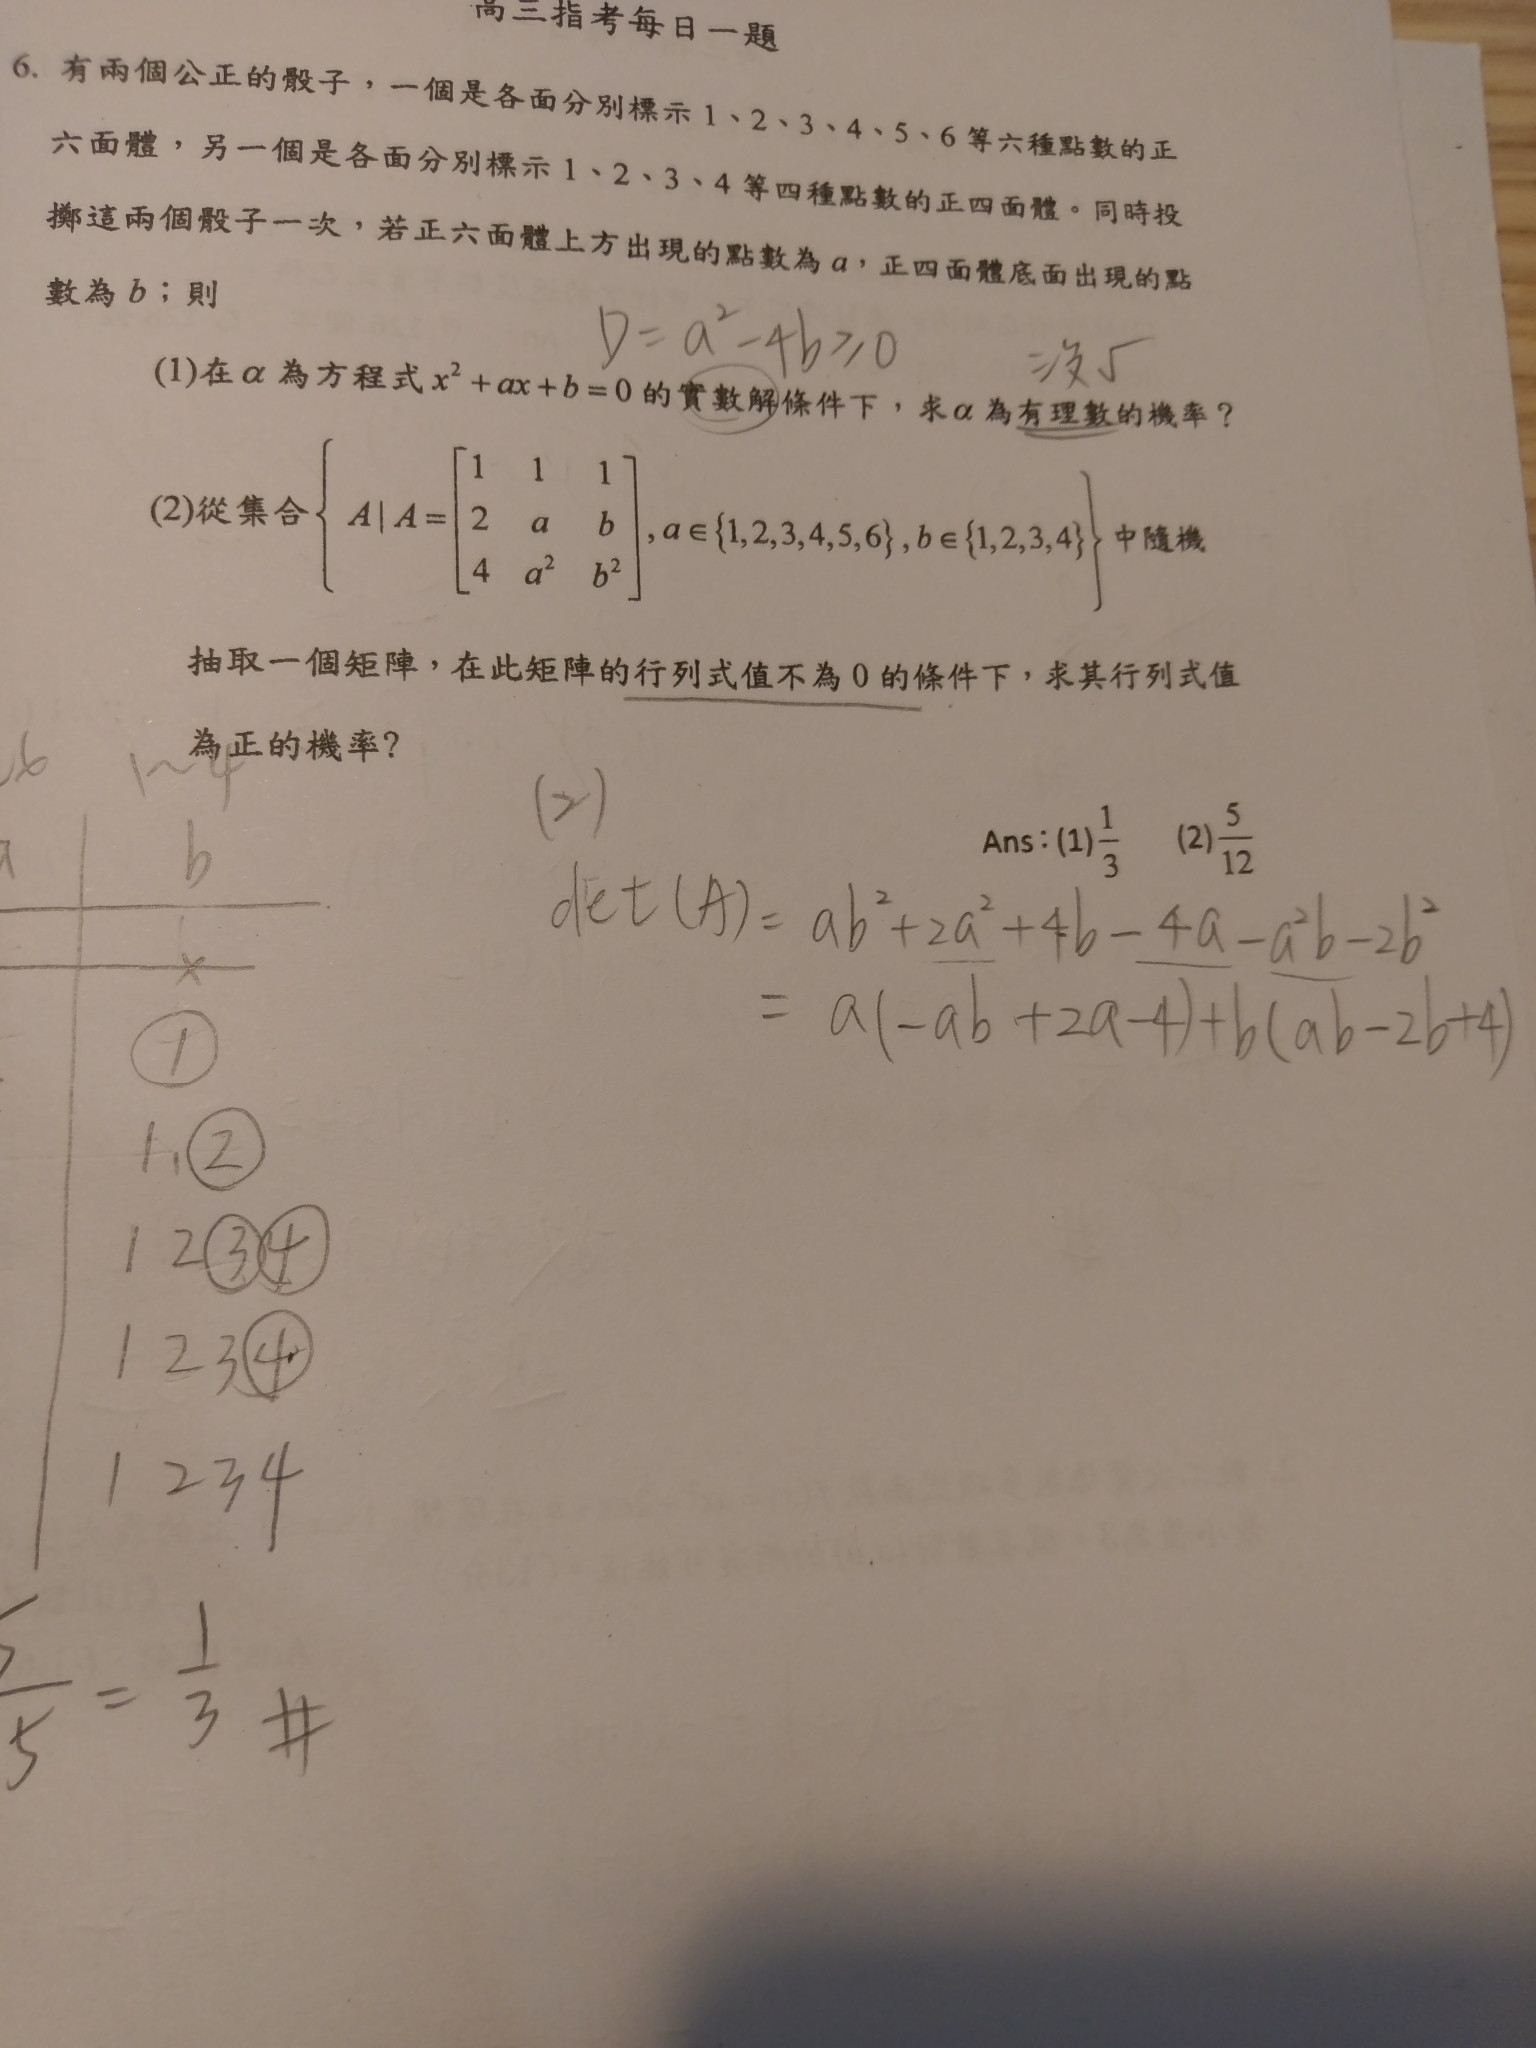 高三指考每日一題
6. 有兩個公正的骰子,一個是各面分別標示1、2、3、4、5、6等六種點數的正
六面體,另一個是各面分別標示1、2、3、4等四種點數的正四面體。同時投
擲這兩個骰子一次,若正六面體上方出現的點數為a,正四面體底面出現的點
數為b;則
D=a²-4b≥0
(1)在α為方程式x²+ax+b=0的實數解條件下,求α為有理數的機率?
(2)從集合{A|A=[1 1 1
2 a b
4 a² b²],a∈{1,2,3,4,5,6},b∈{1,2,3,4}}中隨機
抽取一個矩陣,在此矩陣的行列式值不為0的條件下,求其行列式值
為正的機率?
1~4
(2)
Ans:(1)1/3 (2)5/12
b
det(A)=ab²+2a²+4b-4a-a²b-2b²
=a(-ab+2a-4)+b(ab-2b+4)
x
1
1,2
1 2 3 4
1 2 3 4
1 2 3 4
=1/3 #